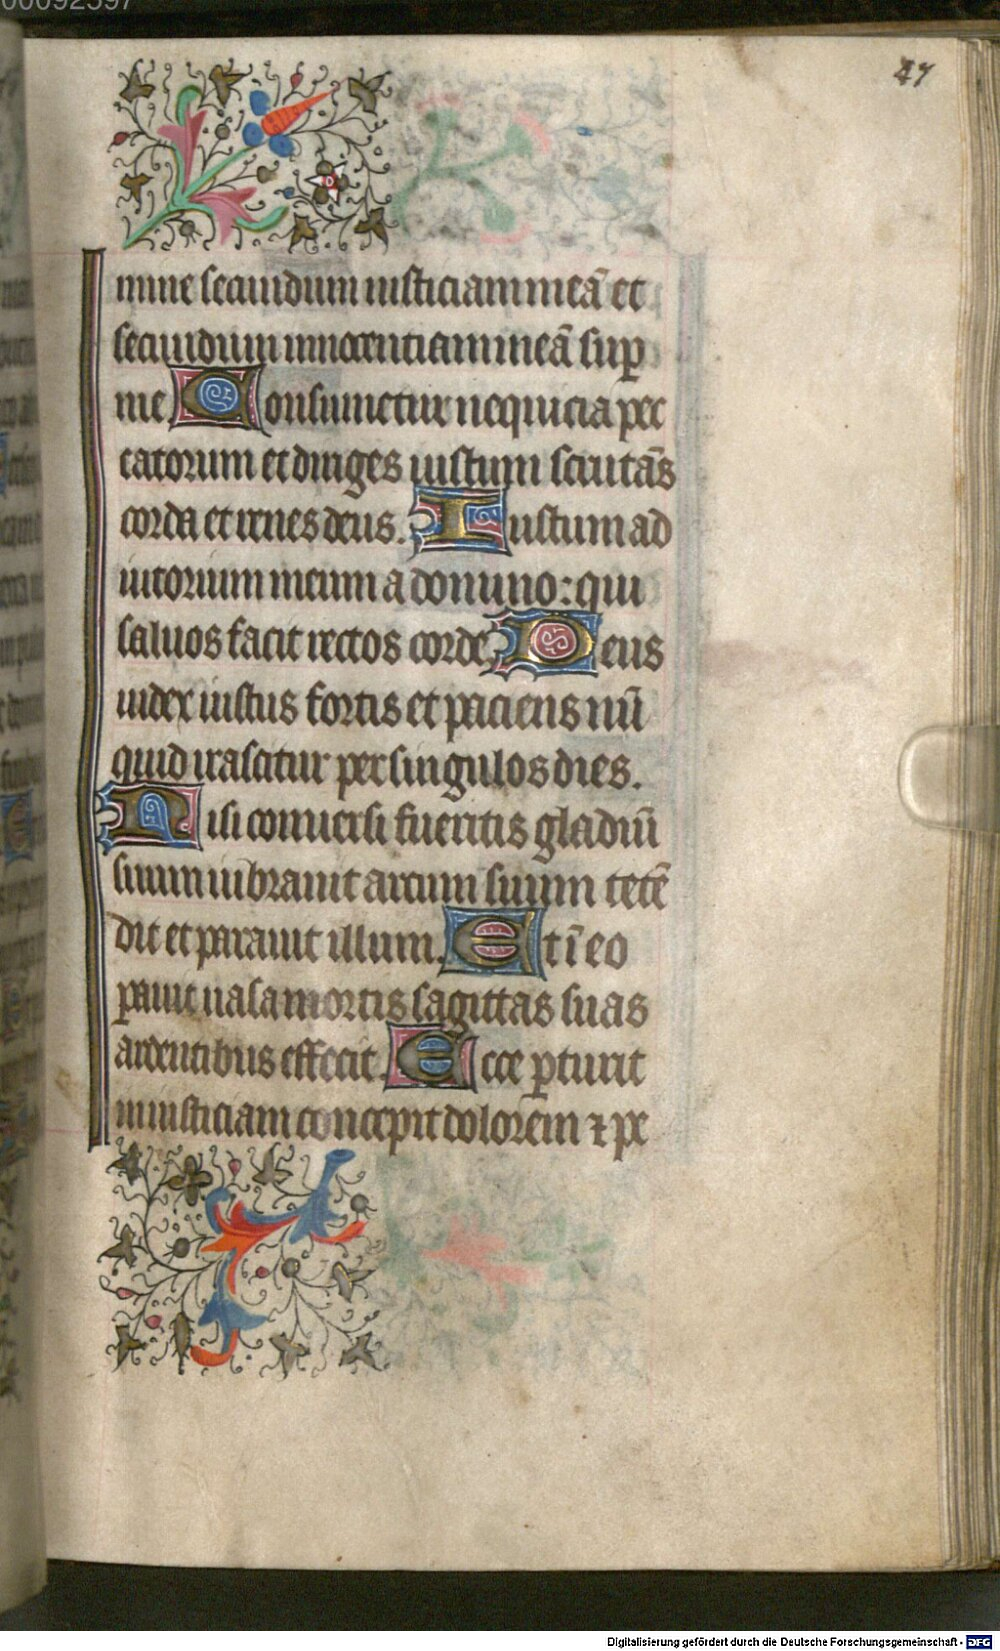 00092397
47
mine secundum iusticiam meā et
secundum innocentiam meā sup
me Consumetur nequicia pec
catorum et diriges iustum scrutās
corda et renes deus. Iustum ad
iutorium meum a domino: qui
saluos facit rectos corde. Deus
iudex iustus fortis et paciens nū
quid irascitur per singulos dies.
Nisi conuersi fueritis gladiū
suum uibrauit arcum suum tetē
dit et parauit illum. Et ī eo
parauit uasa mortis sagittas suas
ardentibus effecit. Ecce pturit
iniusticiam concepit dolorem ⁊ pe
Digitalisierung gefördert durch die Deutsche Forschungsgemeinschaft - DFG